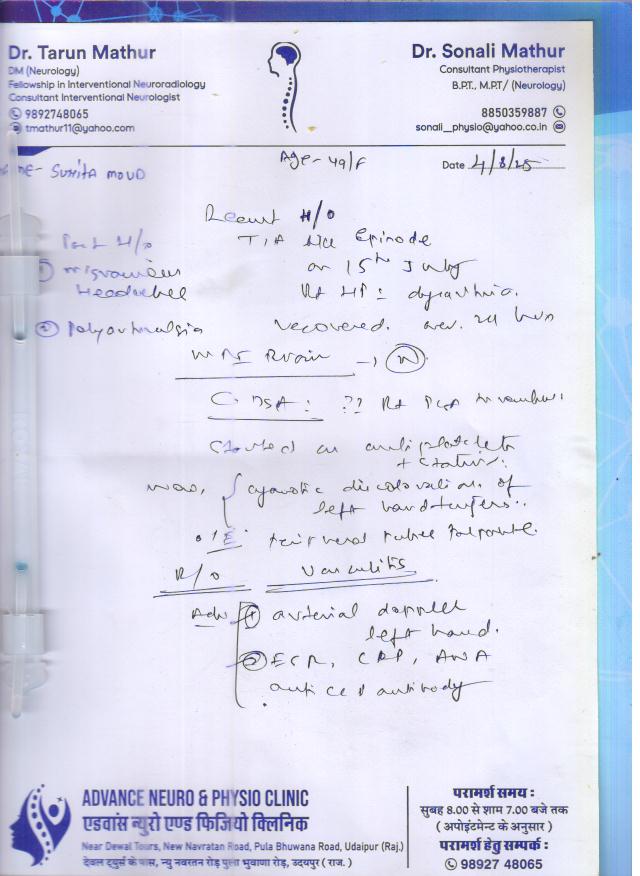 Dr. Tarun Mathur
DM (Neurology)
Fellowship in Interventional Neuroradiology
Consultant Interventional Neurologist
9892748065
tmathur11@yahoo.com
Dr. Sonali Mathur
Consultant Physiotherapist
B.P.T., M.P.T/ (Neurology)
8850359887
sonali_physio@yahoo.co.in
Age - 49/F
Date 4/8/25
Sunita
Recent H/o
TIA like Episode
on 15th July
Rt HP : dysarthria.
recovered. over. 24 hrs
Past H/o
① migraineous
Headache
② Polyarthralgia
MRI Brain → (N)
C. DSA : ?? Rt PCA
Started on antiplatelets
+ statins.
now, cyanotic discoloration of
left hand fingers.
O/E. Peripheral Pulses Palpable.
R/o Vasculitis
Adv ① arterial doppler
left hand.
② ESR, CRP, ANA
anti CCP antibody
ADVANCE NEURO & PHYSIO CLINIC
एडवांस न्युरो एण्ड फिजियो क्लिनिक
Near Dewal Tours, New Navratan Road, Pula Bhuwana Road, Udaipur (Raj.)
देवल ट्युर्स के पास, न्यु नवरतन रोड़ पुला भुवाणा रोड़, उदयपुर ( राज. )
परामर्श समय :
सुबह 8.00 से शाम 7.00 बजे तक
( अपोइंटमेन्ट के अनुसार )
परामर्श हेतु सम्पर्क :
98927 48065